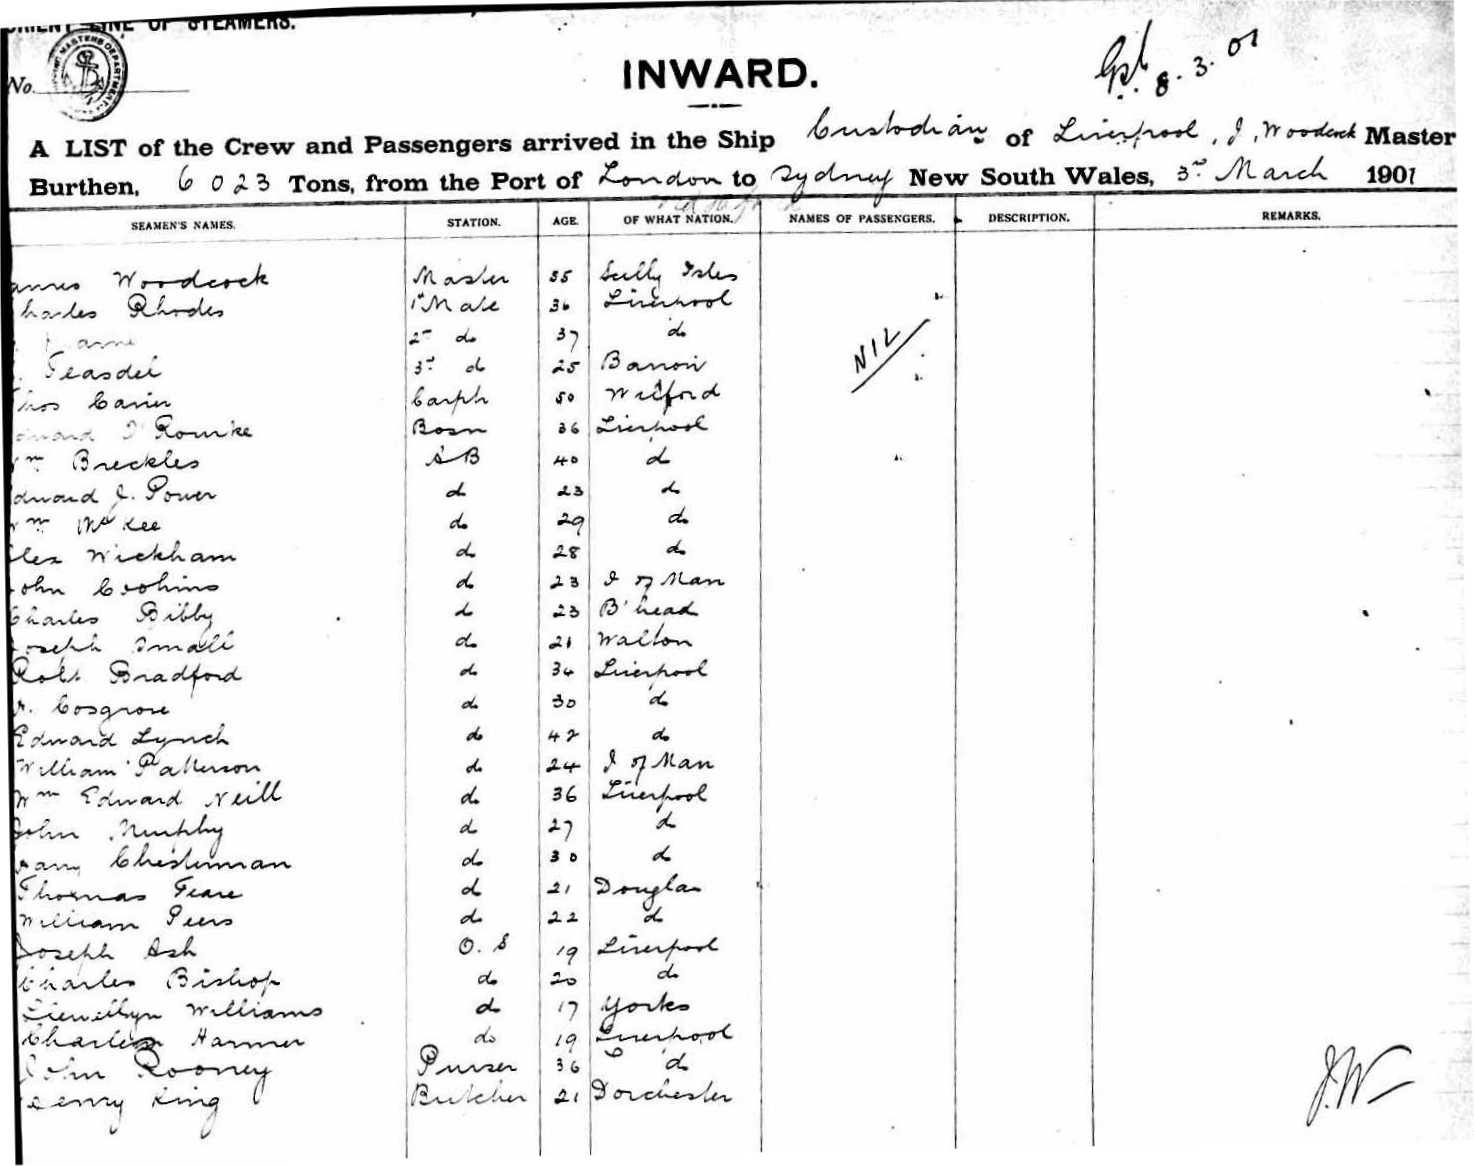 ORIENT LINE OF STEAMERS.
No.
INWARD.
8. 3. 01
A LIST of the Crew and Passengers arrived in the Ship Custodian of Liverpool, J. Woodcock Master
Burthen, 6023 Tons, from the Port of London to Sydney New South Wales, 3rd March 1901
SEAMEN'S NAMES. STATION. AGE. OF WHAT NATION. NAMES OF PASSENGERS. DESCRIPTION. REMARKS.
James Woodcock Master 55 Scilly Isles
Charles Rhodes 1st Mate 36 Liverpool
2nd do 37 do
Teasdel 3rd d 25 NIL
Thos Carph 50
Edward O'Rourke Bosn 36 Liverpool
Wm Breckles AB 40 d
Edward J. Power d 23 d
Wm McKee d 29 d
Alex Wickham d 28 d
John d 23 I of Man
Charles Bibby d 23 B'head
Joseph Small d 21 Walton
Robt Bradford d 34 Liverpool
Cosgrove d 30 d
Edward Lynch d 42 d
William Patterson d 24 I of Man
Wm Edward Neill d 36 Liverpool
John Murphy d 27 d
Harry Chesterman d 30 d
Thomas Teare d 21 Douglas
William Peers d 22 d
Joseph Ash O.S 19 Liverpool
Charles Bishop do 20 d
Llewellyn Williams d 17 Yorks
Charles Harmer do 19 Liverpool
John Rooney Purser 36 d
Henry King Butcher 21 Dorchester
J.W